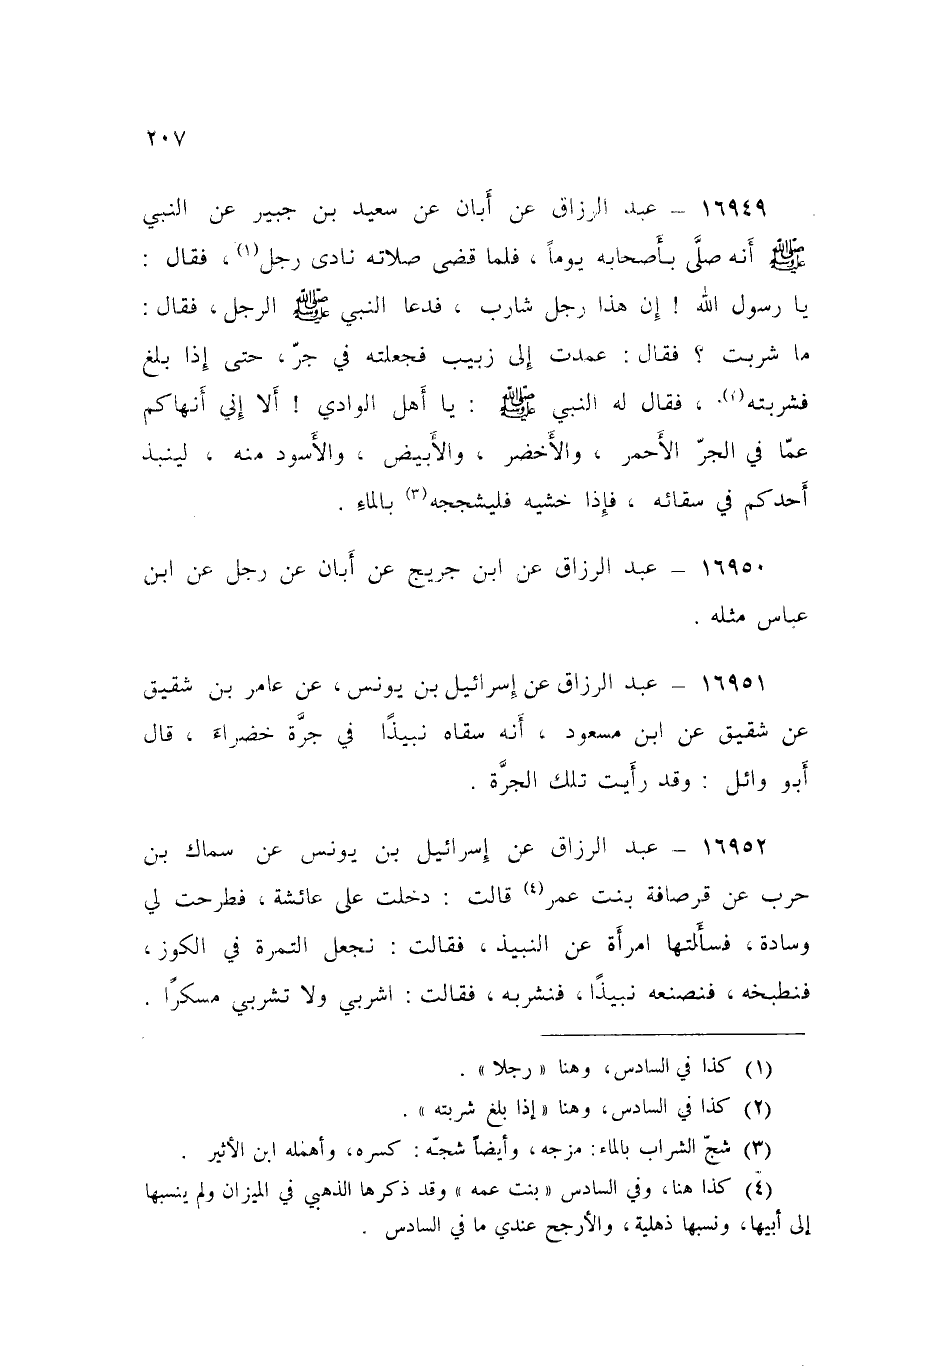 ٢٠٧
١٦٩٤٩ – عبد الرزاق عن أَبان عن سعيد بن جبير عن النبي
ﷺ أَنه صلَّى بأَصحابه يوماً ، فلما قضى صلاته نادى رجل(١) ، فقال :
يا رسول الله ! إن هذا رجل شارب ، فدعا النبي ﷺ الرجل ، فقال :
ما شربت ؟ فقال : عمدت إلى زبيب فجعلته في جرّ ، حتى إذا بلغ
فشربته(٢) ، فقال له النبي ﷺ : يا أَهل الوادي ! أَلا إني أَنهاكم
عمّا في الجرّ الأَحمر ، والأَخضر ، والأَبيض ، والأَسود منه ، لينبذ
أَحدكم في سقائه ، فإذا خشيه فليشججه(٣) بالماءِ .
١٦٩٥٠ – عبد الرزاق عن ابن جريج عن أَبان عن رجل عن ابن
عباس مثله .
١٦٩٥١ – عبد الرزاق عن إسرائيل بن يونس ، عن عامر بن شقيق
عن شقيق عن ابن مسعود ، أَنه سقاه نبيذًا في جرَّة خضراءَ ، قال
أَبو وائل : وقد رأَيت تلك الجرَّة .
١٦٩٥٢ – عبد الرزاق عن إسرائيل بن يونس عن سماك بن
حرب عن قرصافة بنت عمر(٤) قالت : دخلت على عائشة ، فطرحت لي
وسادة ، فسأَلتها امرأَة عن النبيذ ، فقالت : نجعل التمرة في الكوز ،
فنطبخه ، فنصنعه نبيذًا ، فنشربه ، فقالت : اشربي ولا تشربي مسكرًا .
(١) كذا في السادس ، وهنا « رجلا » .
(٢) كذا في السادس ، وهنا « إذا بلغ شربته » .
(٣) شجّ الشراب بالماء : مزجه ، وأيضاً شجّه : كسره ، وأهمله ابن الأثير .
(٤) كذا هنا ، وفي السادس « بنت عمه » وقد ذكرها الذهبي في الميزان ولم ينسبها
إلى أبيها ، ونسبها ذهلية ، والأرجح عندي ما في السادس .